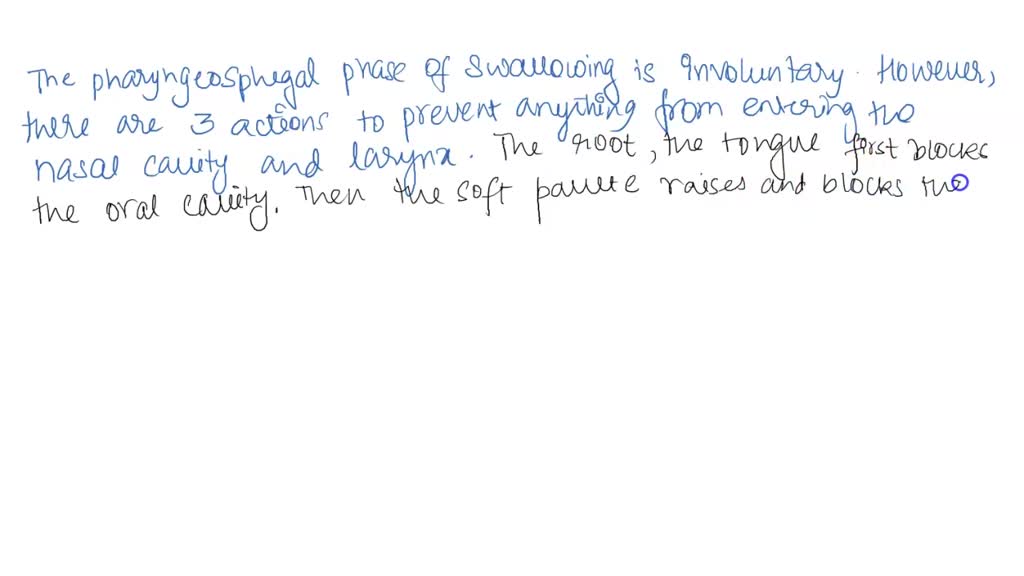 The pharyngeosphegal phase of swallowing is involuntary. However,
there are 3 actions to prevent anything from entering the
nasal cavity and larynx. The root, the tongue first blocks
the oral cavity. Then the soft palate raises and blocks the